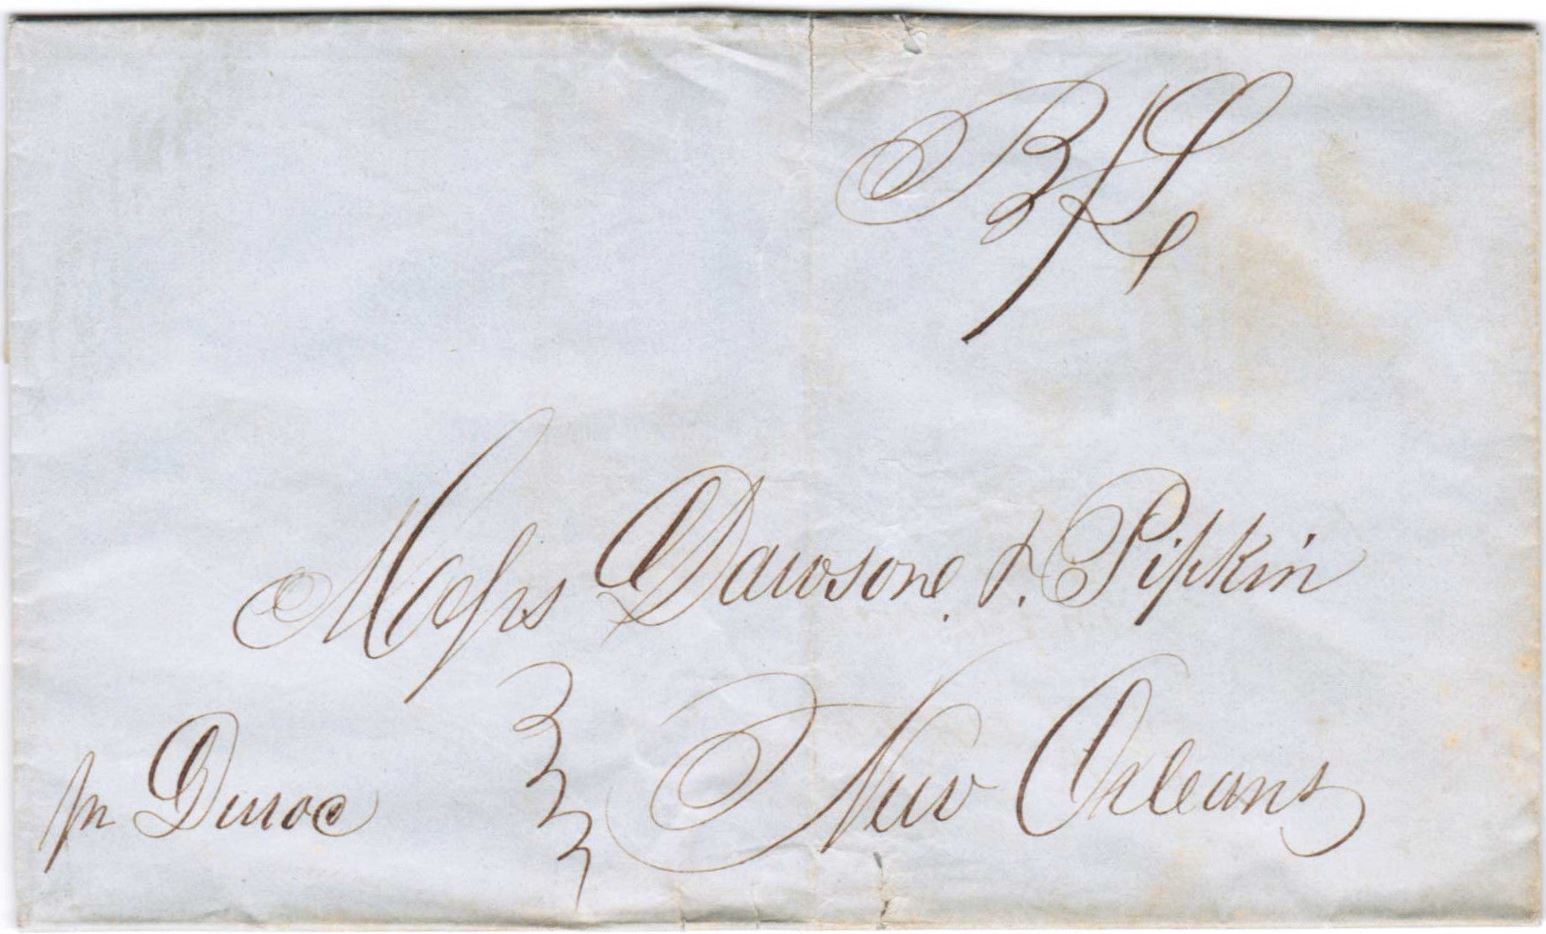 B/L
Messrs Dawson & Pipkin
New Orleans
pr Duroc